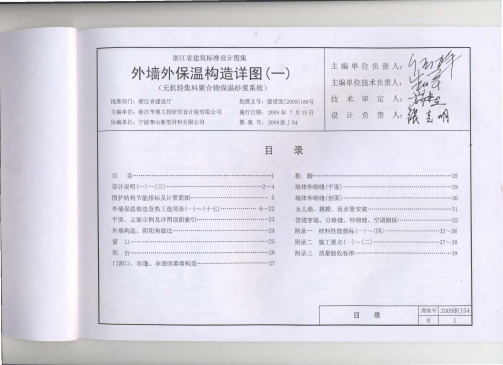 浙江省建筑标准设计图集
外墙外保温构造详图(一)
(无机轻集料聚合物保温砂浆系统)
批准部门：浙江省建设厅
批准文号：建设发[2009]188号
主编单位：浙江华展工程研究设计院有限公司
施行日期：2009 年 7 月 15 日
协编单位：宁波荣山新型材料有限公司
图 集 号：2009浙J54
主编单位负责人：
主编单位技术负责人：
技 术 审 定 人：
设 计 负 责 人：
目 录
目 录 1
设计说明(一)~(三) 2~4
围护结构节能指标及计算简图 5
外墙保温做法及热工选用表(一)~(十七) 6~22
平面、立面示例及详图剖析索引 23
外墙构造、阴阳角做法 24
窗 口 25
阳 台 26
门洞口、雨篷、非透明幕墙构造 27
勒 脚 28
墙体伸缩缝(平面) 29
墙体伸缩缝(剖面) 30
女儿墙、挑檐、雨水管安装 31
管道穿墙、分格缝、伸缩缝、空调搁板 32
附录一 材料性能指标(一)~(四) 33~36
附录二 施工要点(一)~(二) 37~38
附录三 质量验收标准 39
目 录
图集号 2009浙J54
页 1